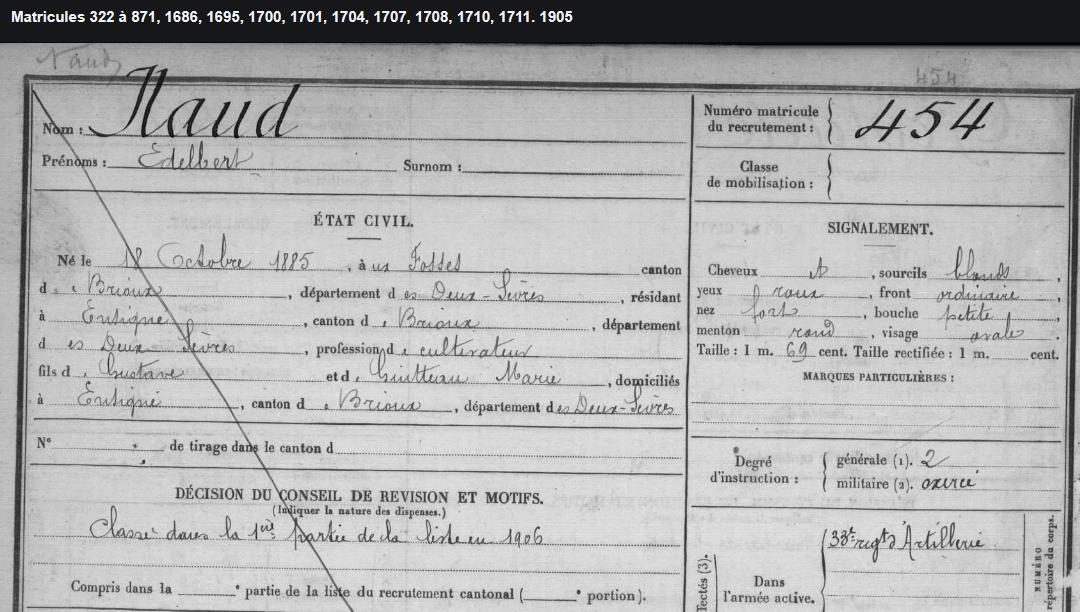 Matricules 322 à 871, 1686, 1695, 1700, 1701, 1704, 1707, 1708, 1710, 1711. 1905
Naud
454
Nom : Naud
Prénoms : Edelbert Surnom :
Numéro matricule du recrutement : 454
Classe de mobilisation :
ÉTAT CIVIL.
Né le 18 Octobre 1885, à aux Fosses canton
d e Brioux, département d es Deux-Sèvres, résidant
à Ensigné, canton d e Brioux, département
d es Deux Sèvres, profession d e cultivateur
fils d e Gustave et d e Guitteau Marie, domiciliés
à Ensigné, canton d e Brioux, département des Deux-Sèvres
N° de tirage dans le canton d
DÉCISION DU CONSEIL DE REVISION ET MOTIFS.
(Indiquer la nature des dispenses.)
Classé dans la 1ère partie de la liste en 1906
Compris dans la ° partie de la liste du recrutement cantonal ( ° portion).
SIGNALEMENT.
Cheveux et, sourcils blonds,
yeux roux, front ordinaire,
nez fort, bouche petite,
menton rond, visage ovale.
Taille : 1 m. 69 cent. Taille rectifiée : 1 m. cent.
MARQUES PARTICULIÈRES :
Degré d'instruction :
générale (1). 2
militaire (2). exercé
33e régt d'Artillerie
Dans l'armée active.
NUMÉRO
répertoire du corps.